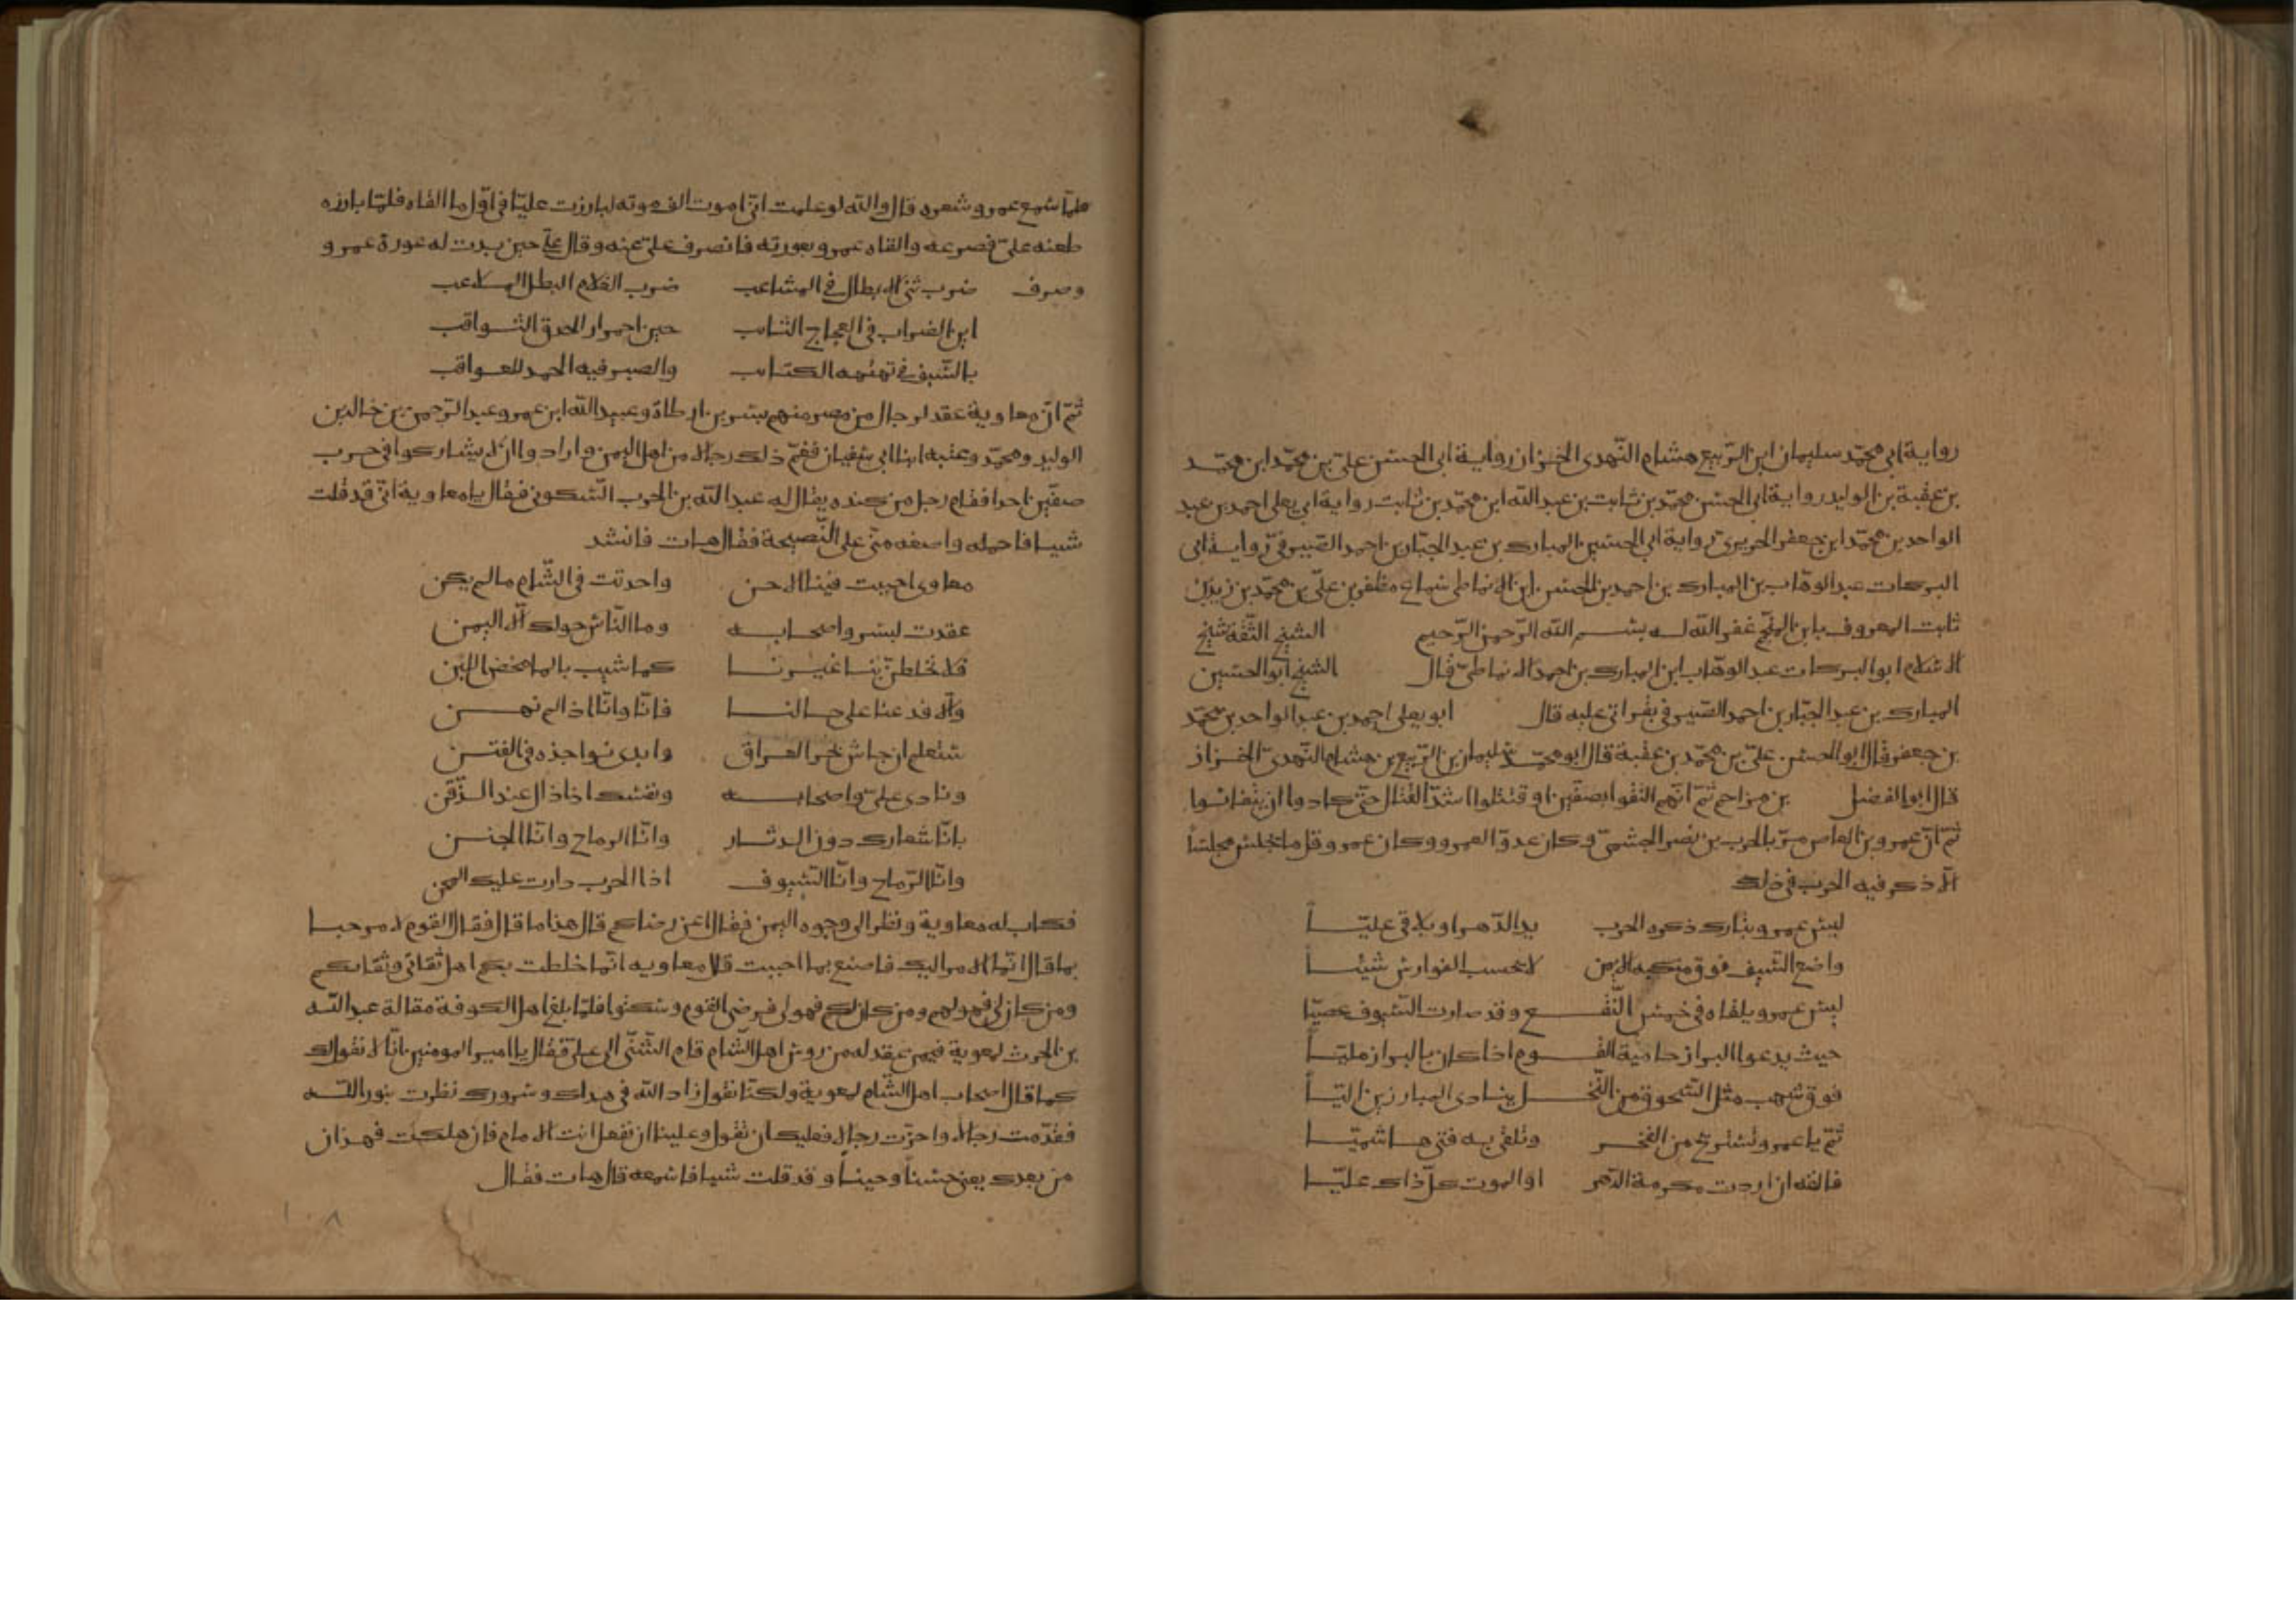 رواية ابي محمد سليمان ابن الربيع هشام النهدى الخزاز رواية ابى الحسن على بن محمد ابن محمد
بن عقبة بن الوليد رواية ابى الحسن محمد بن ثابت بن عبد الله ابن محمد بن ثابت رواية ابى يعلى احمد بن عبد
الواحد بن محمد ابن جعفر الحريرى رواية ابى الحسين المبارك بن عبد الجبار بن احمد الصيرفى رواية ابى
البركات عبد الوهاب بن المبارك بن احمد بن الحسن ابن الانماطى سماع مظفر بن على بن محمد بن زيد بن
ثابت المعروف بابن المنجم غفر الله له بسم الله الرحمن الرحيم الشيخ الثقة شيخ
الاسلام ابو البركات عبد الوهاب ابن المبارك بن احمد الانماطى قال الشيخ ابو الحسين
المبارك بن عبد الجبار بن احمد الصيرفى بقراتى عليه قال ابو يعلى احمد بن عبد الواحد بن محمد
بن جعفر قال ابو الحسن على بن محمد بن عقبة قال ابو محمد سليمان بن الربيع بن هشام النهدى الخزاز
قال ابو الفضل بن مزاحم ثم انهم التقوا بصفين او قتتلوا اشد القتال حتى كادوا ان يتفانوا
ثم ان عمرو بن العاص مر بالحرب بن نصر الجشمى وكان عدوا لعمرو وكان عمرو وقل ما يجلس مجلسا
الا ذكر فيه الحرب فى ذلك
ليس عمرو بتارك ذكره الحرب يد الدهر او يلاقى عليا
واضع السيف فوق منكبه الايمن لا يحسب الفوارس شيئا
ليس عمرو يلقاه فى خمس النقع وقد صارت السيوف عصيا
حيث يدعوا البراز حامية القوم اذا كان بالبراز مليا
فوق شهب مثل السحوق من النخل ينادى المبارزين اليا
ثم يا عمرو تستريح من الفخر وتلقى به فتى هاشميا
فالقه ان اردت مكرمة الدهر او الموت كل ذاك عليا
فلما سمع عمرو شعره قال والله لو علمت انى اموت الف موته لبارزت عليا فى اول ما القاه فلما بارزه
طعنه على فصرعه والقاه عمرو بعورته فانصرف على عنه وقال على حين بدت له عورة عمرو
وصرف ضرب شى الابطال فى المشاعب ضرب الغلام البطل الملاعب
اين الضراب فى العجاج الثايب حين احمرار الحدق الثواقب
بالسيف فى تهتهه الكتايب والصبر فيه الحمد للعواقب
ثم ان معاوية عقد لرجال من مصر منهم بسر بن ارطاة وعبيد الله ابن عمرو عبد الرحمن بن خالد بن
الوليد ومحمد وعتبه ابنا ابى سفيان فغم ذلك رجالا من اهل اليمن وارادوا ان لا يشاركوا فى حرب
صفين احدا فقام رجل من كنده يقال له عبد الله بن الحرب السكونى فقال يا معاوية انى قد قلت
شيا فاحمله واصغه منى على النصيحة فقال هات فانشد
معاوى احييت فينا الاحن واحدثت فى الشام ما لم يكن
عقدت لبسر واصحابه وما الناس حولك الا اليمن
فلا تخلطن بنا غيرنا كما شيب بالما محض اللبن
والا فدعنا على حالنا فانا وانا اذا لم نهن
ستعلم ان جاش بحر العراق وابدى نواجذه فى الفتن
ونادى على واصحابه ونفسك اذا ذال عند الذقن
بانا شعارك دون الدثار وانا الرماح وانا الجنن
وانا الرماح وانا السيوف اذا الحرب دارت عليك المحن
فكاب له معاوية ونظر الى وجوه اليمن فقال اعن رضاكم قال هذا ما قال فقال القوم لا مرحبا
بما قال انما الامر اليك فاصنع بما احببت قال معاويه انما خلطت بكم اهل ثقاتى وثقاتكم
ومن كان لى فهو لكم ومن كان لكم فهو لى فرضى القوم وسكتوا فلما بلغ اهل الكوفة مقالة عبد الله
بن الحرث لمعوية فيمن عقد له من روس اهل الشام قام الشنى الى على فقال يا امير المومنين انا لا نقول لك
كما قال اصحاب اهل الشام لمعوية ولكنا نقول زاد الله فى هداك وسرورك نظرت بنور الله
فقدمت رجالا واخرت رجالا فعليك ان تقول وعلينا ان نفعل انت الامام فان هلكت فهذان
من بعدك يعنى حسنا وحينا وقد قلت شيا فاسمعه قال هات فقال
١٠٨